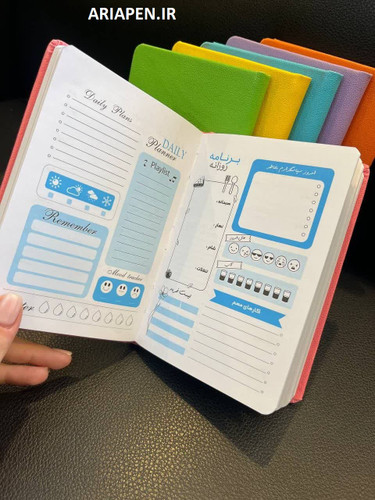 ARIAPEN.IR
Daily Plans
DAILY
Planner
Playlist
Remember
Mood tracker
برنامه
روزانه
صبحانه:
ناهار:
شام:
کارهای مهم